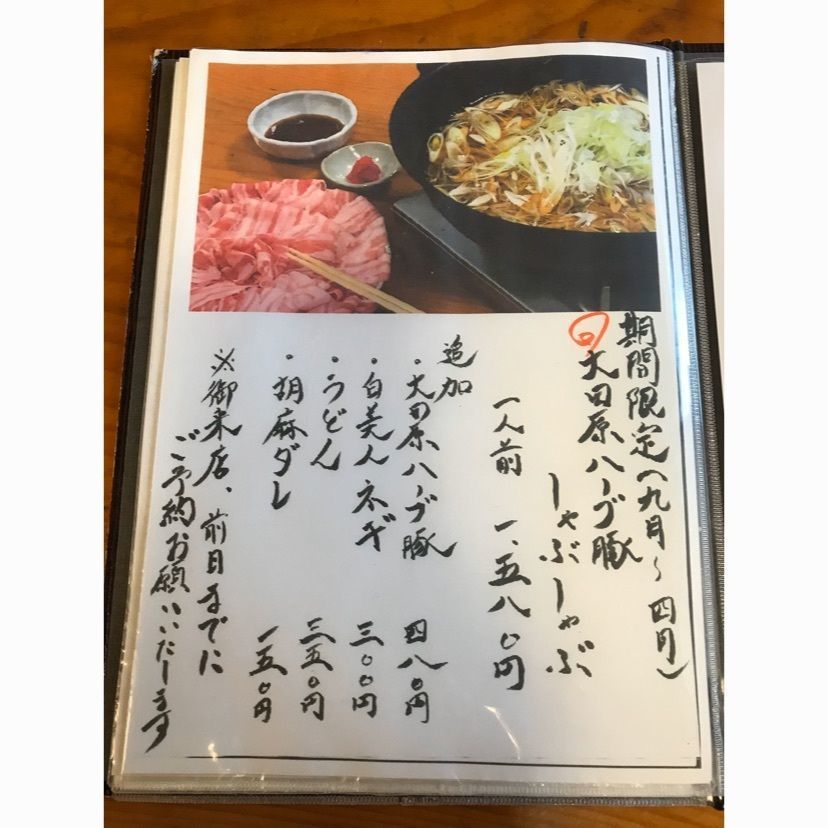 期間限定(九月~四月)
回大田原ハーブ豚
しゃぶしゃぶ
一人前 一、五八〇円
追加
・大田原ハーブ豚 四八〇円
・白美人ネギ 三〇〇円
・うどん 三五〇円
・胡麻ダレ 一五〇円
※御来店、前日までに
ご予約お願いいたします